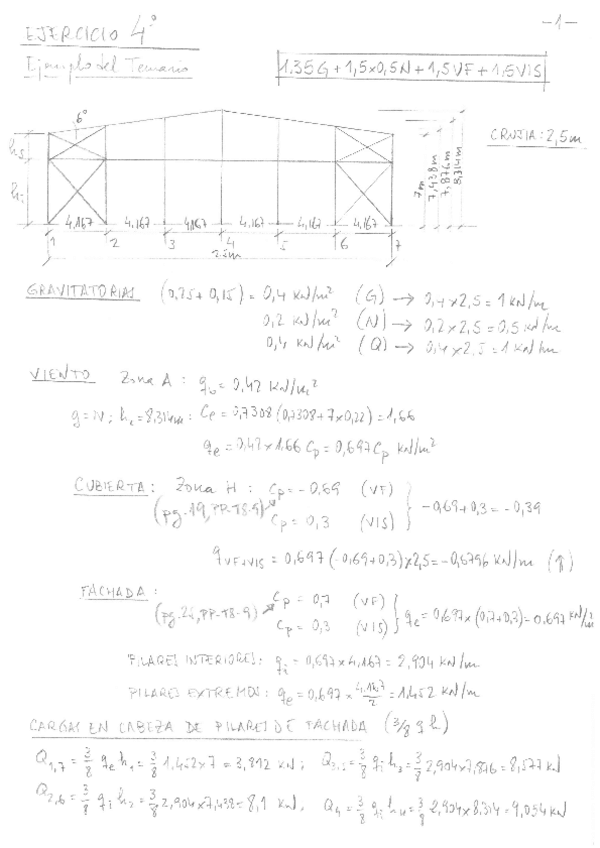 EJERCICIO 4º
-1-
Ejemplo del Temario
1.35G + 1,5x0,5N + 1,5VF + 1.5VIS
6º
CRUJIA: 2,5m
hs
hi
7m
7,438m
7,876m
8,314m
4,167 4,167 4,167 4,167 4,167 4,167
1 2 3 4 5 6 7
25m
GRAVITATORIAS (0,25+0,15) = 0,4 kN/m² (G) → 0,4x2,5 = 1 kN/m
0,2 kN/m² (N) → 0,2x2,5 = 0,5 kN/m
0,4 kN/m² (Q) → 0,4x2,5 = 1 kN/m
VIENTO Zona A: qb = 0,42 kN/m²
g = IV; h = 8,314m: Ce = 0,7308 (0,7308 + 7x0,22) = 1,66
qe = 0,42 x 1.66 Cp = 0,697 Cp kN/m²
CUBIERTA: Zona H: Cp = -0,69 (VF)
(pg-19, PP-T8-9) Cp = 0,3 (VIS) } -0,69+0,3 = -0,39
qVF+VIS = 0,697 (-0,69+0,3)x2,5 = -0,6796 kN/m (↑)
FACHADA:
(pg.25, PP-T8-9) Cp = 0,7 (VF)
Cp = 0,3 (VIS) } qe = 0,697x(0,7+0,3) = 0.697 kN/m²
PILARES INTERIORES: qi = 0,697x4,167 = 2,904 kN/m
PILARES EXTREMOS: qe = 0,697 x 4,167/2 = 1,452 kN/m
CARGAS EN CABEZA DE PILARES DE FACHADA (3/8 q h)
Q1,7 = 3/8 qe h1 = 3/8 1,452x7 = 3,812 kN; Q3,5 = 3/8 qi h3 = 3/8 2,904x7,876 = 8,577 kN
Q2,6 = 3/8 qi h2 = 3/8 2,904x7,438 = 8,1 kN. Q4 = 3/8 qi h4 = 3/8 2,904x8,314 = 9,054 kN